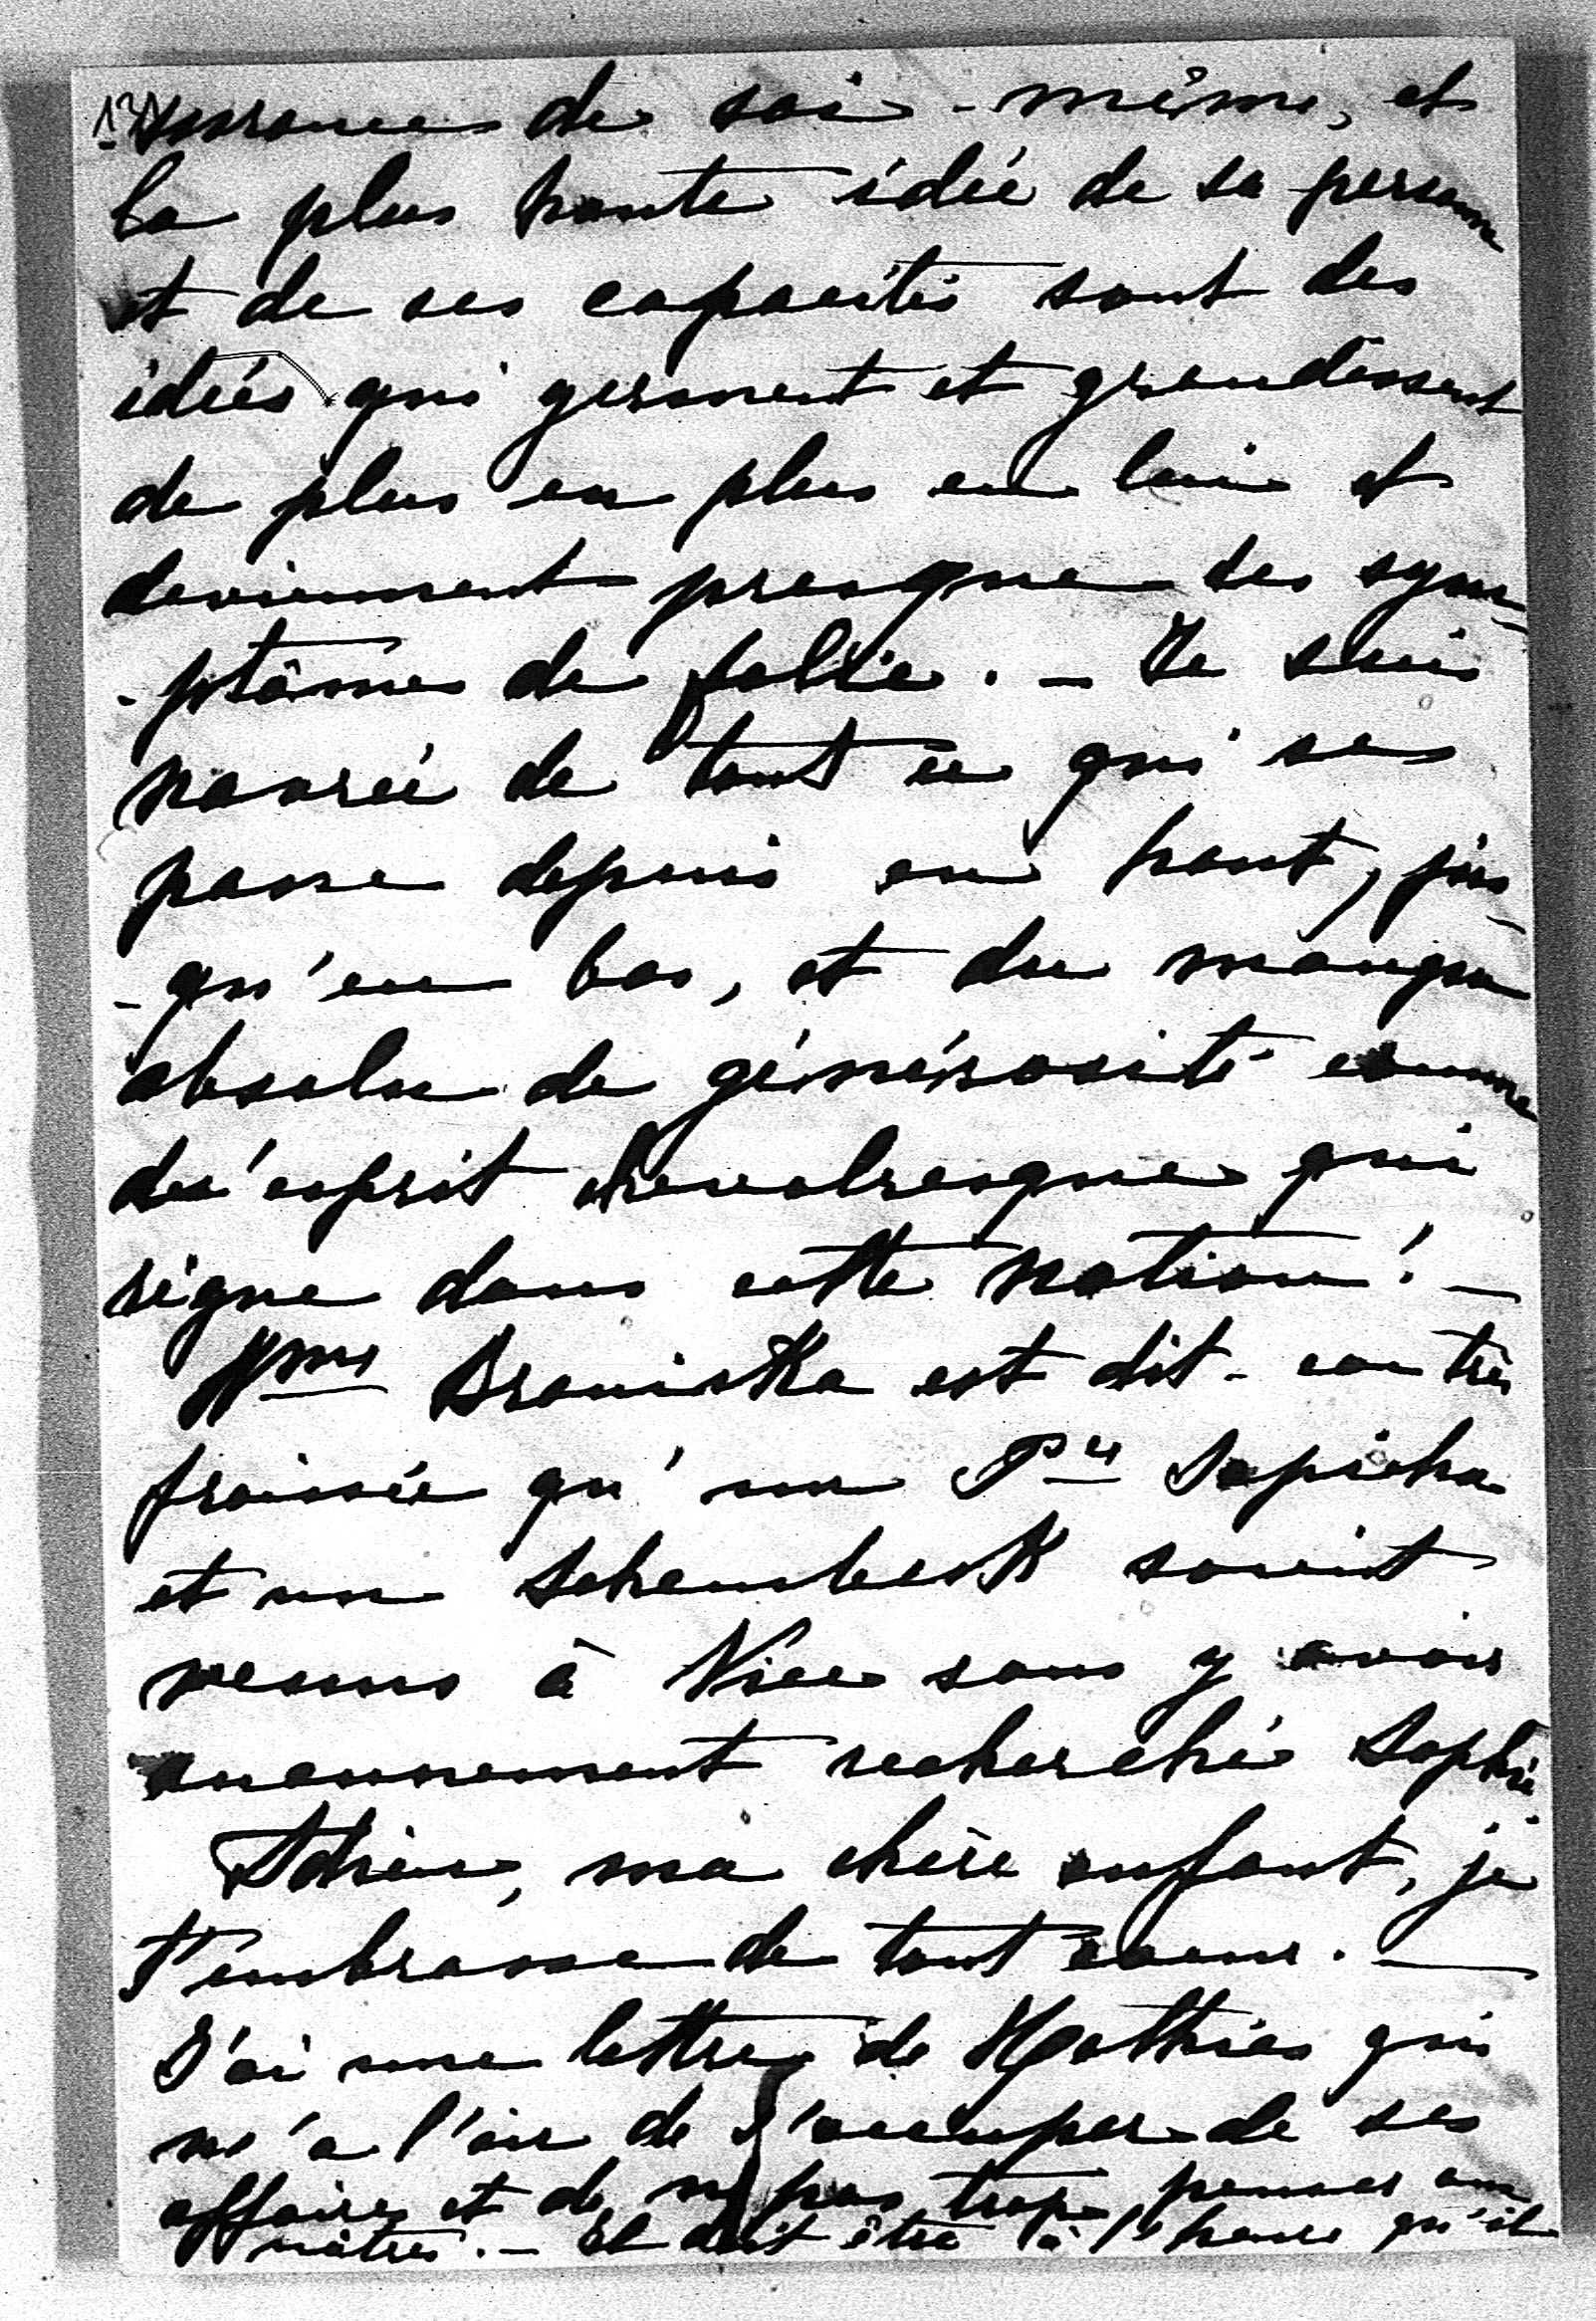 surance de soi-même, et
la plus haute idée de sa personne
et de ses capacités sont des
idées qui germent et grandissent
de plus en plus en lui et
deviennent presque des sym-
-ptômes de folie. - Je suis
navrée de tout ce qui se
passe depuis en haut, jus-
-qu'en bas, et du manque
absolu de générosité comme
d'esprit chevalresque qui
règne dans cette nation! -
Mme Braniska est dit-on très
froissée qu'un Pce Sapieha
et un Schembeck soient
venus à Nice sans y avoir
aucunement recherché Sophie
Adieu, ma chère enfant, je
t'embrasse de tout coeur. -
J'ai une lettre de Mathias qui
m'a l'air de s'occuper de ses
affaires et de ne pas trop penser aux
nôtres. - Il doit être à l'heure qu'il